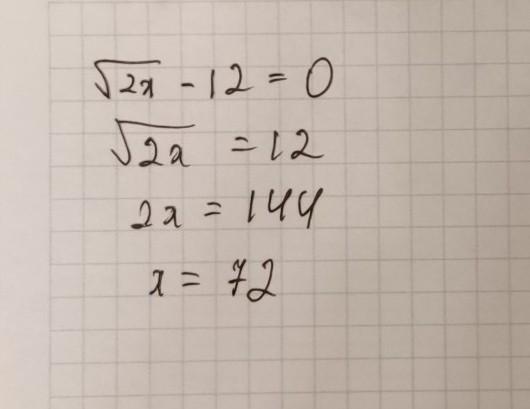 √2x - 12 = 0
√2x = 12
2x = 144
x = 72